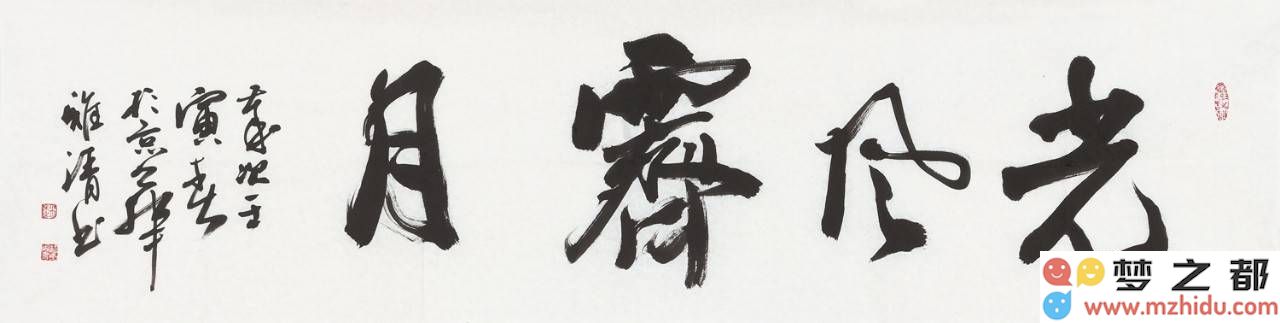 光风霽月
歲次壬
寅春
於京華
雅清书
梦之都
www.mzhidu.com